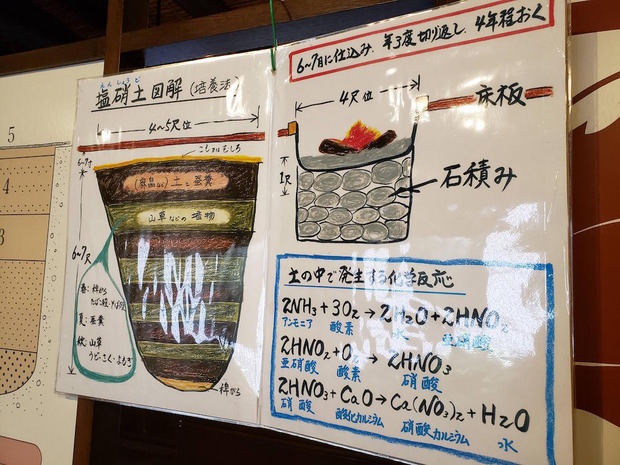 5
4
3
えんしょうど
塩硝土図解(培養法)
4〜5尺位
こも又はむしろ
6〜7寸
土と蚕糞
山草などの植物
6〜7尺
春:稗から
たばこ殻・そば殻
夏:蚕糞
秋:山草
うど・さく・よもぎ
稗から
6〜7月に仕込み、年3度切り返し、4年程おく
4尺位
床板
1尺
石積み
土の中で発生する化学反応
2NH₃+3O₂→2H₂O+2HNO₂
アンモニア 酸素 水 亜硝酸
2HNO₂+O₂→2HNO₃
亜硝酸 酸素 硝酸
2HNO₃+CaO→Ca(NO₃)₂+H₂O
硝酸 酸化カルシウム 硝酸カルシウム 水